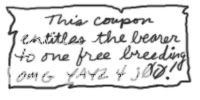 This coupon
entitles the bearer
to one free breeding
OMG YAYZ 4